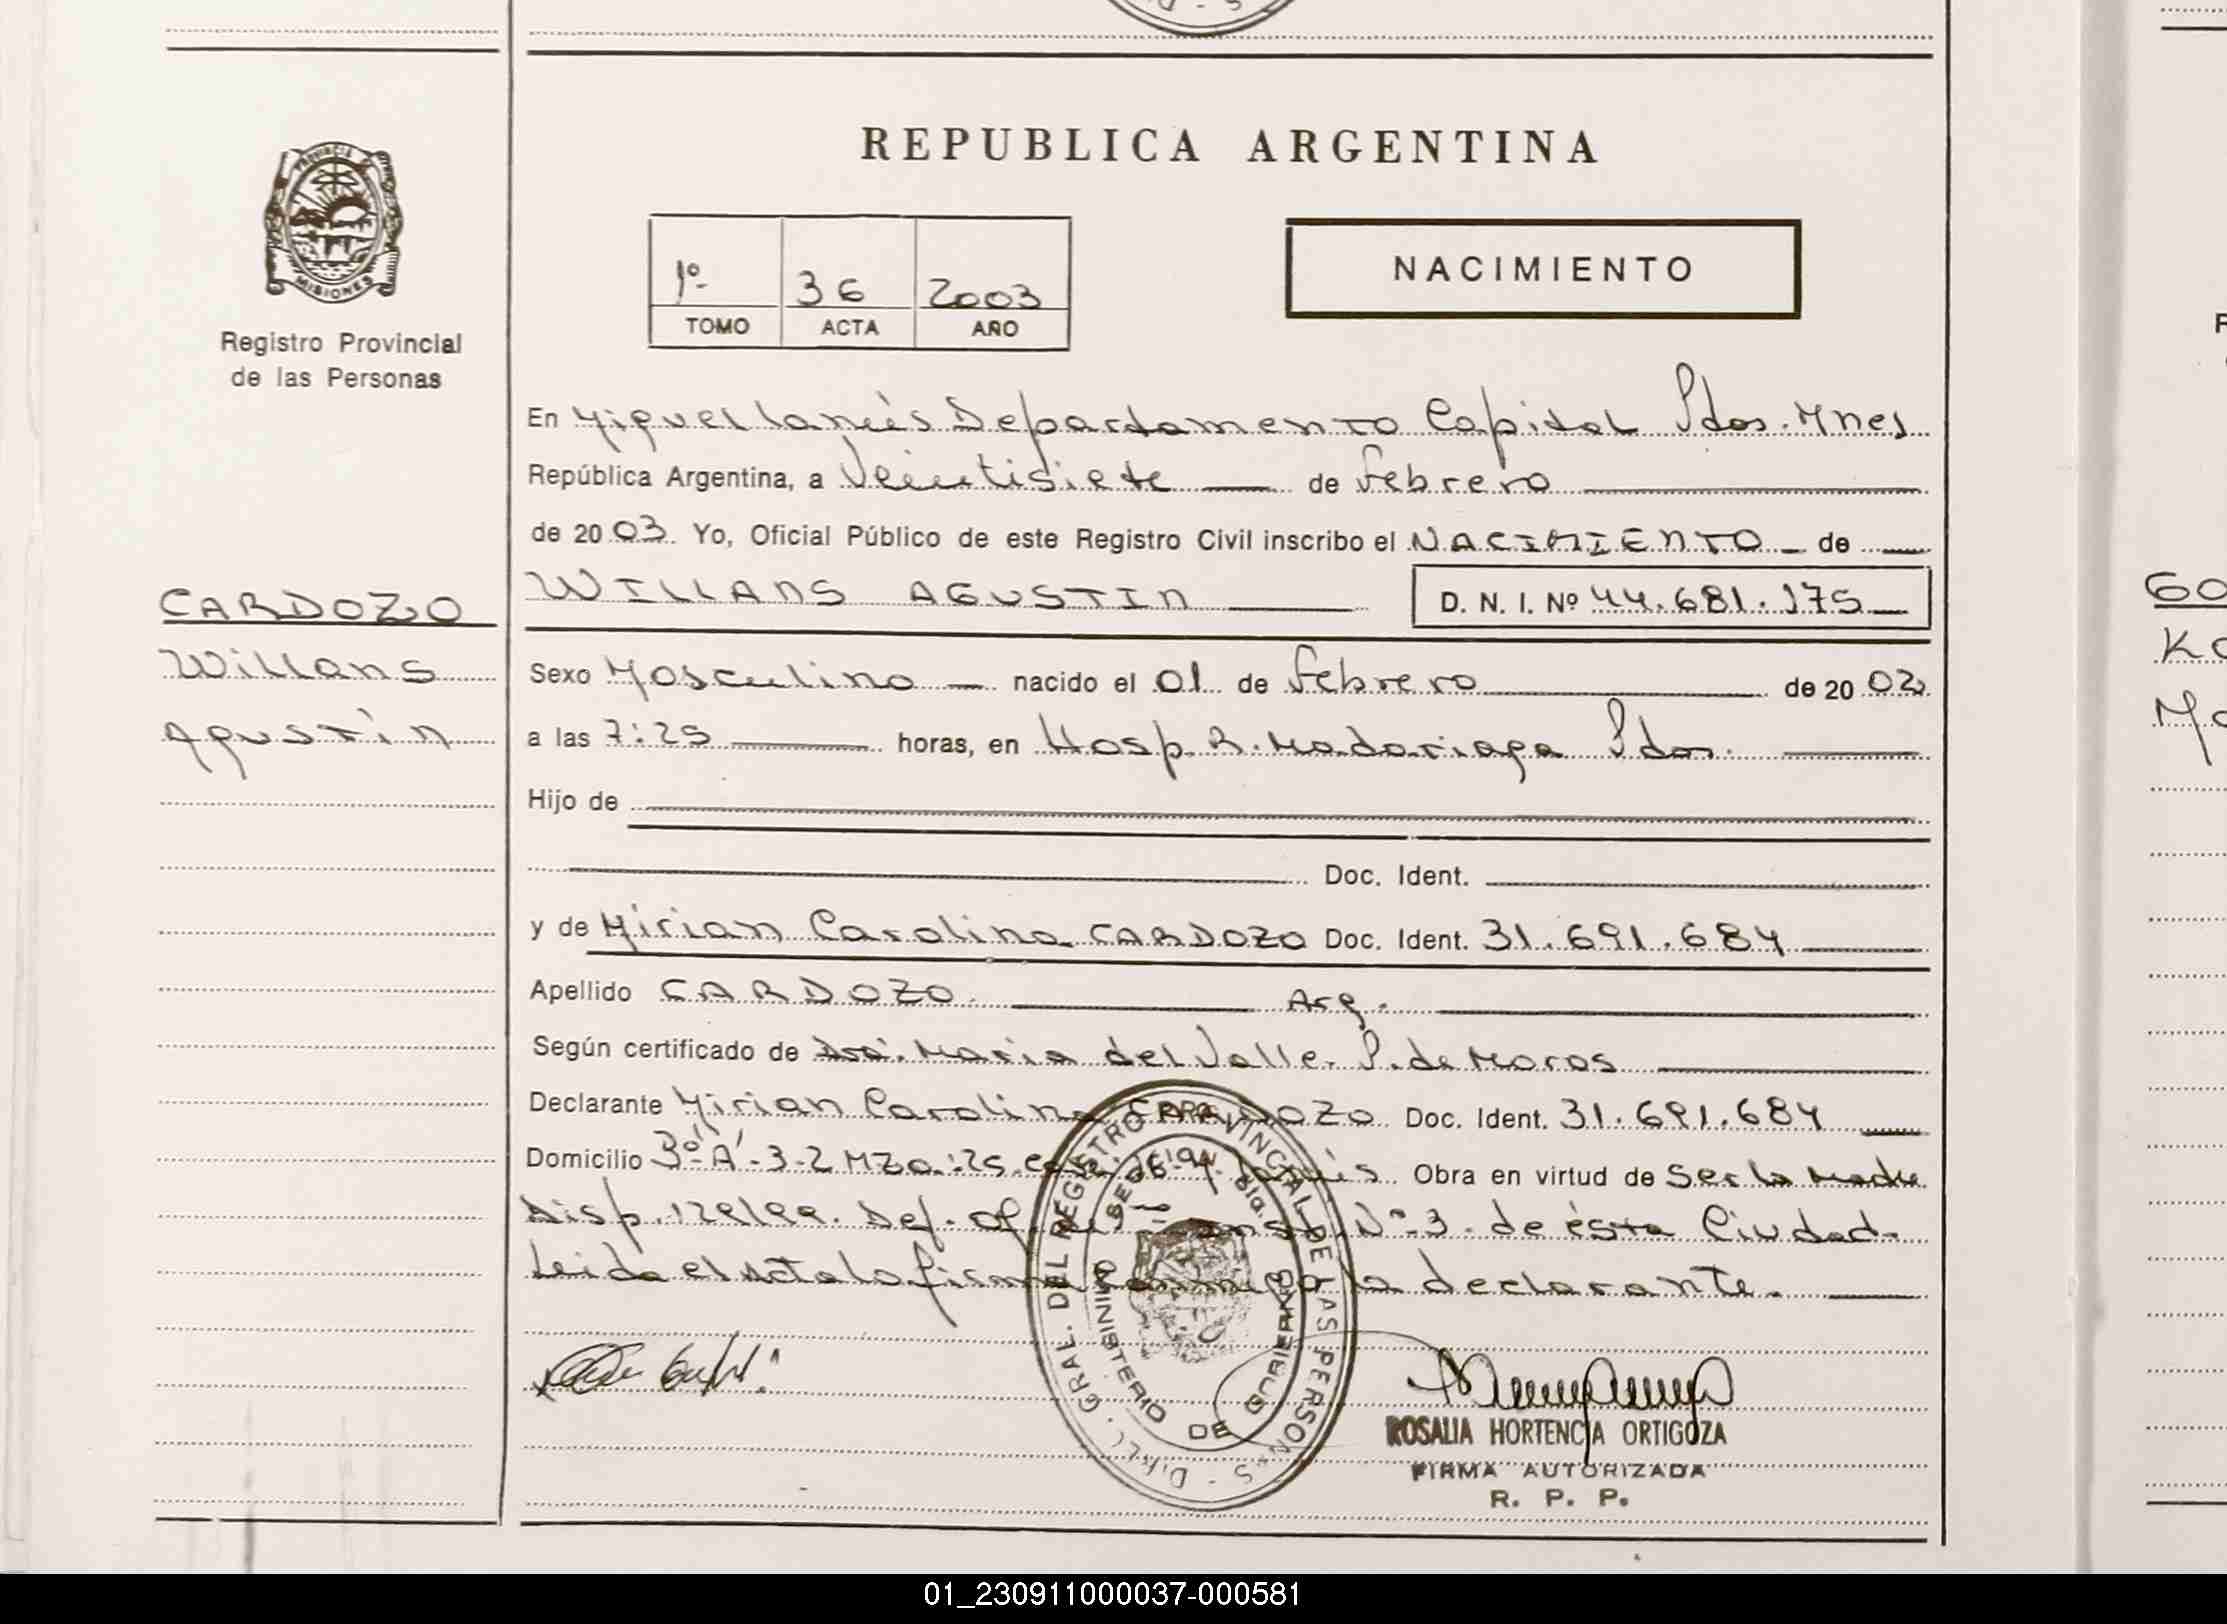 S - D
REPUBLICA ARGENTINA
PROVINCIA DE
MISIONES
Registro Provincial
de las Personas
1º 36 2003
TOMO ACTA AÑO
NACIMIENTO
En Miguel Lanús Departamento Capital Pdas. Mnes
República Argentina, a Veintisiete de Febrero
de 2003. Yo, Oficial Público de este Registro Civil inscribo el NACIMIENTO de
WILLANS AGUSTIN D. N. I. Nº 44.681.175
CARDOZO
Willans
Agustin
Sexo Masculino nacido el 01 de Febrero de 2002
a las 7:25 horas, en Hosp. R. Madariaga Pdas.
Hijo de
Doc. Ident.
y de Mirian Carolina CARDOZO Doc. Ident. 31.691.684
Apellido CARDOZO Arg.
Según certificado de Dra. Maria del Valle P. de Moros
Declarante Mirian Carolina CARDOZO Doc. Ident. 31.691.684
Domicilio 3º"A"-3-2 Mza. 25 Casa Lanús. Obra en virtud de Ser la Madre
Disp. Def. Of. Nº 3 de ésta Ciudad-
Leida el Acta la firma Conmigo la declarante.
DIR. GRAL. DEL REGISTRO PROVINCIAL DE LAS PERSONAS
MINISTERIO DE GOBIERNO
ROSALIA HORTENCIA ORTIGOZA
FIRMA AUTORIZADA
R. P. P.
GO
Ka
Ma
01_230911000037-000581